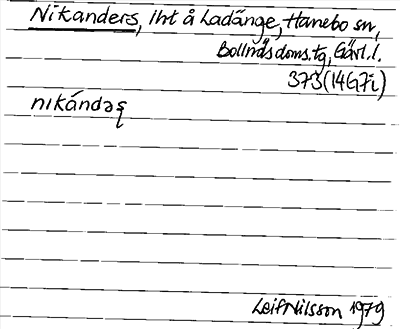 Nikanders, lht å Ladänge, Hanebo sn,
Bollnäs doms.tg, Gävl.l.
373 (14G7i)
nikándəʂ
Leif Nilsson 1979